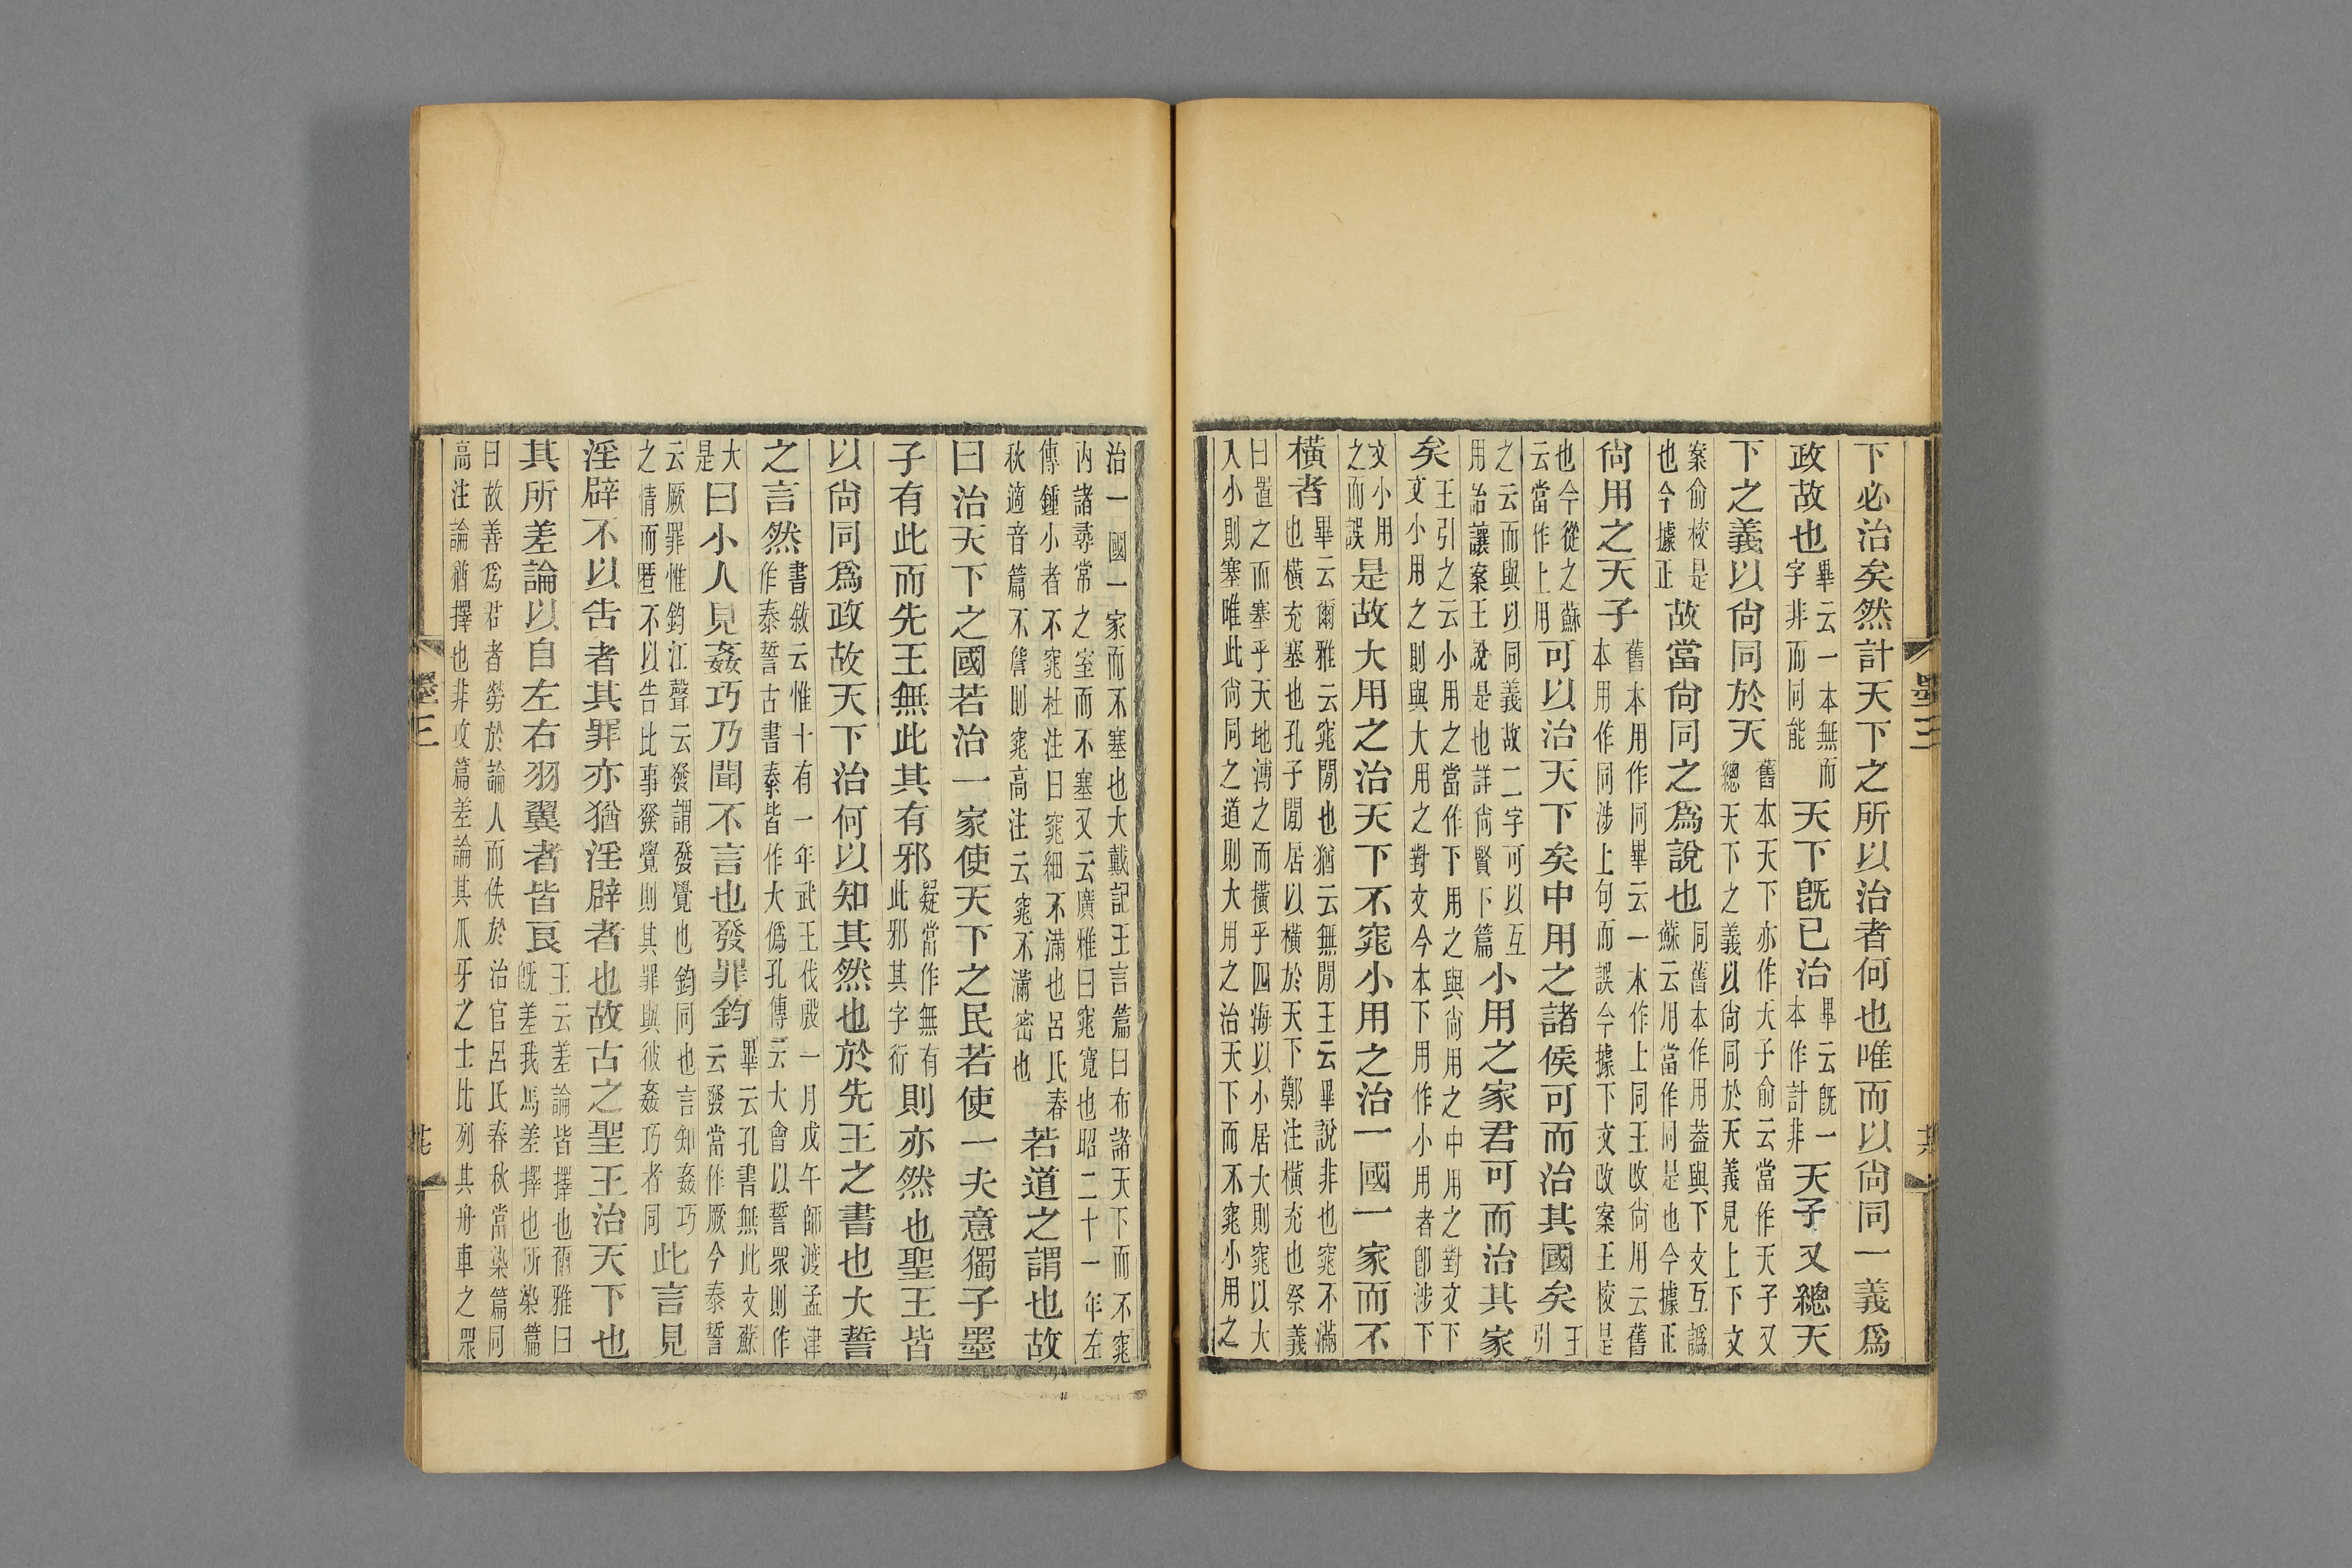 下必治矣然計天下之所以治者何也唯而以尚同一義爲
政故也畢云一本無而字非而同能天下旣已治畢云旣一本作計非天子又總天
下之義以尚同於天舊本天下亦作天子俞云當作天子又總天下之義以尚同於天義見上下文
案俞校是也今據正故當尚同之爲說也同舊本作用葢與下文互譌蘇云用當作同是也今據正
尚用之天子舊本用作同畢云一本作上同王改尚用云舊本用作同涉上句而誤今據下文改案王校是
也今從之蘇云當作上用可以治天下矣中用之諸侯可而治其國矣王引
之云而與以同義故二字可以互用詒讓案王說是也詳尚賢下篇小用之家君可而治其家
矣王引之云小用之當作下用之與尚用之中用之對文下文小用之則與大用之對文今本下用作小用者卽涉下
文小用之而誤是故大用之治天下不窕小用之治一國一家而不
橫者畢云爾雅云窕閒也猶云無閒王云畢說非也窕不滿也橫充塞也孔子閒居以橫於天下鄭注橫充也祭義
曰置之而塞乎天地溥之而橫乎四海以小居大則窕以大入小則塞唯此尚同之道則大用之治天下而不窕小用之
治一國一家而不塞也大戴記王言篇曰布諸天下而不窕內諸尋常之室而不塞又云廣雅曰窕寬也昭二十一年左
傳鍾小者不窕杜注曰窕細不滿也呂氏春秋適音篇不詹則窕高注云窕不滿密也若道之謂也故
曰治天下之國若治一家使天下之民若使一夫意獨子墨
子有此而先王無此其有邪疑當作無有此邪其字衍則亦然也聖王皆
以尚同爲政故天下治何以知其然也於先王之書也大誓
之言然書敘云惟十有一年武王伐殷一月戊午師渡孟津作泰誓古書泰皆作大僞孔傳云大會以誓眾則作
大是曰小人見姦巧乃聞不言也發罪鈞畢云孔書無此文蘇云發當作厥今泰誓
云厥罪惟鈞江聲云發謂發覺也鈞同也言知姦巧之情而匿不以告此事發覺則其罪與彼姦巧者同此言見
淫辟不以告者其罪亦猶淫辟者也故古之聖王治天下也
其所差論以自左右羽翼者皆良王云差論皆擇也爾雅曰旣差我馬差擇也所染篇
曰故善爲君者勞於論人而佚於治官呂氏春秋當染篇同高注論猶擇也非攻篇差論其爪牙之士比列其舟車之眾
墨三
墨三